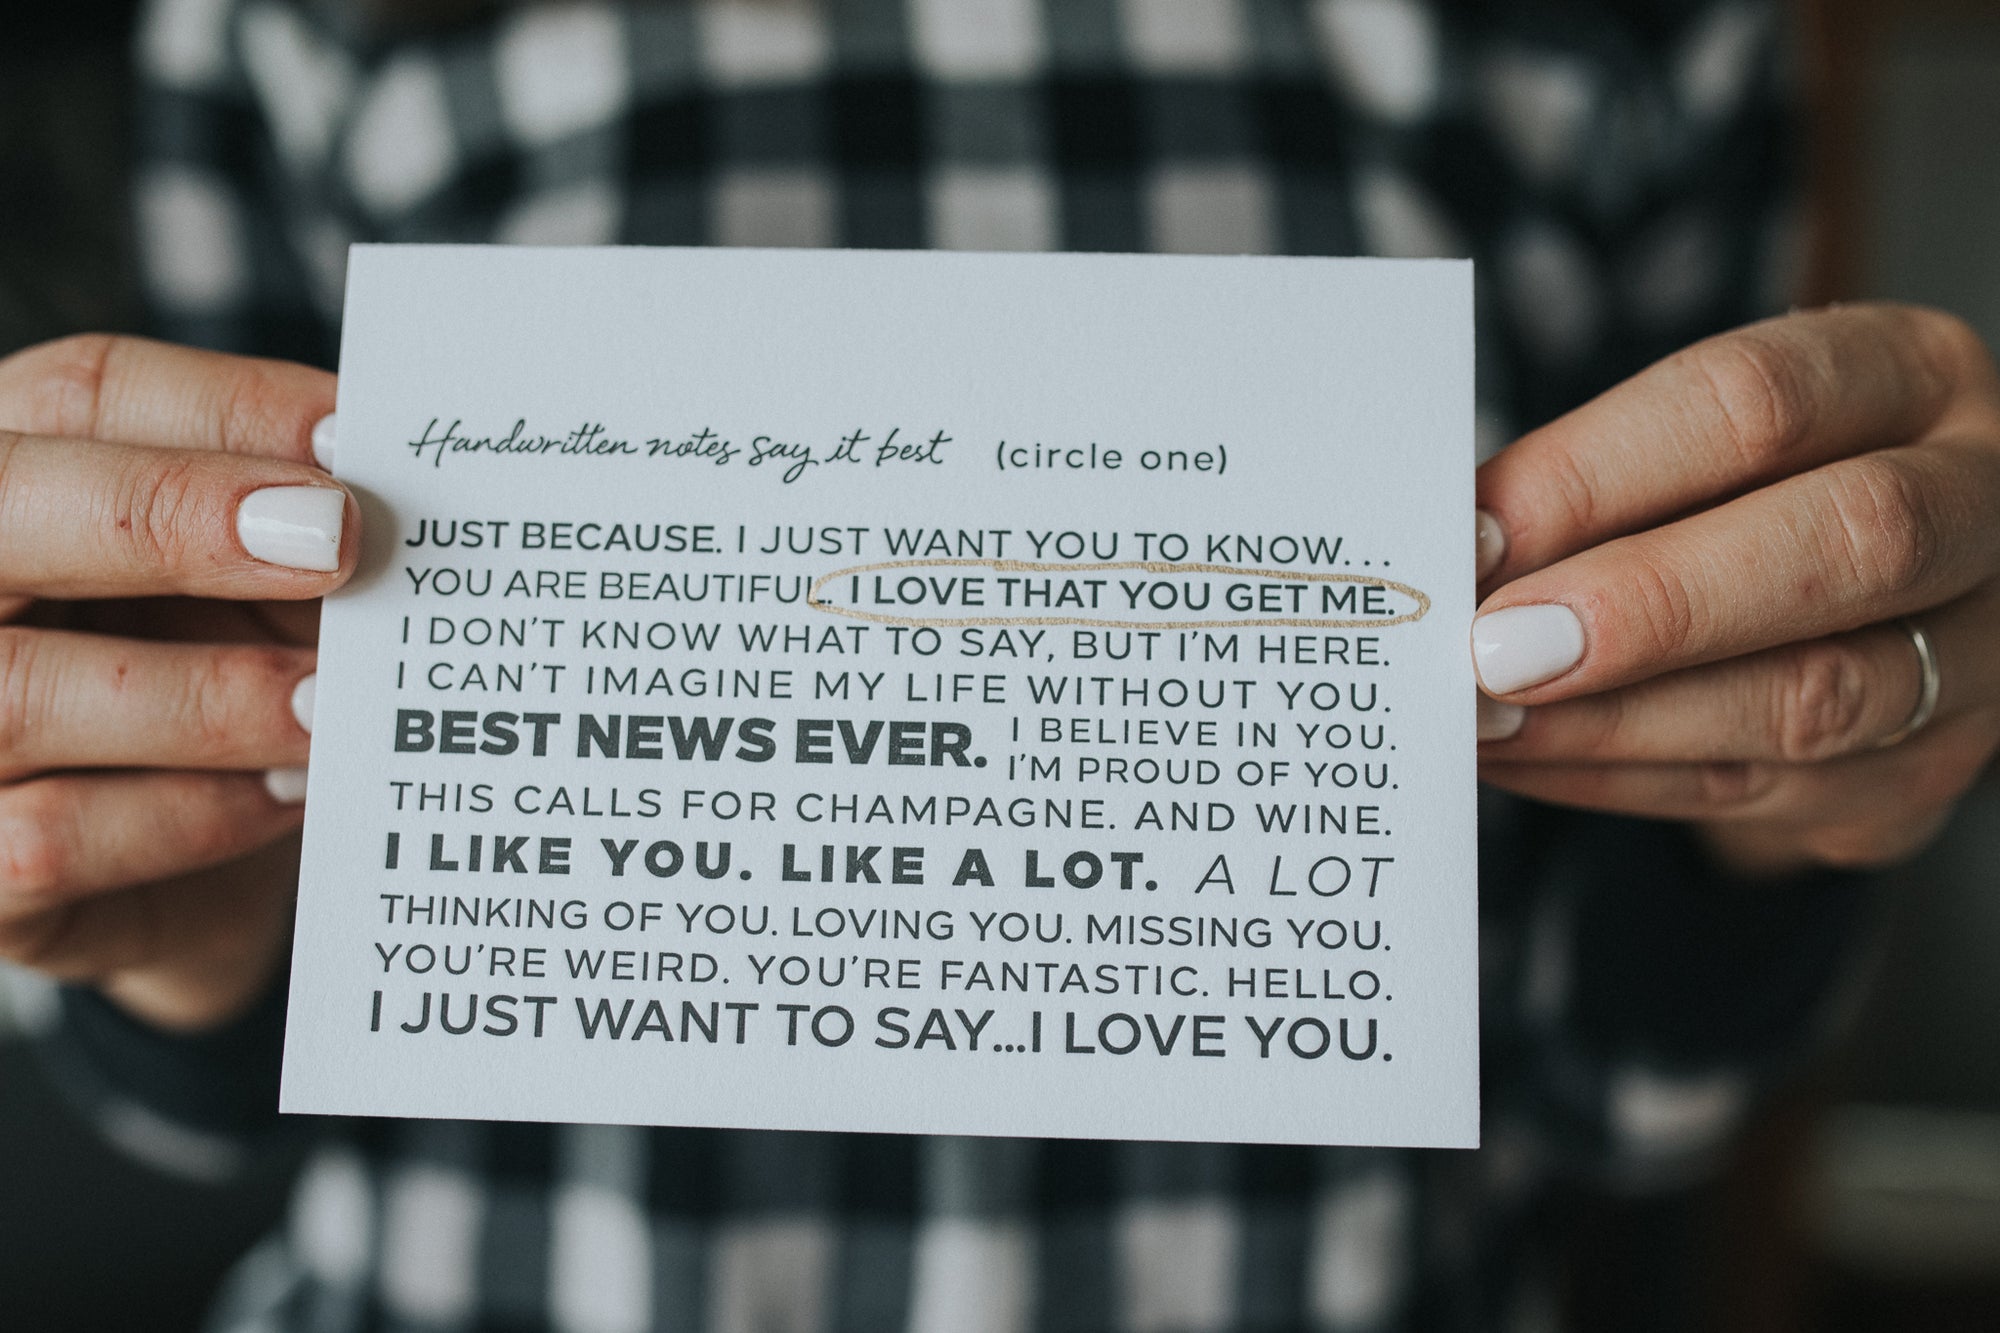 Handwritten notes say it best (circle one)
JUST BECAUSE. I JUST WANT YOU TO KNOW...
YOU ARE BEAUTIFUL. I LOVE THAT YOU GET ME.
I DON'T KNOW WHAT TO SAY, BUT I'M HERE.
I CAN'T IMAGINE MY LIFE WITHOUT YOU.
BEST NEWS EVER. I BELIEVE IN YOU.
I'M PROUD OF YOU.
THIS CALLS FOR CHAMPAGNE. AND WINE.
I LIKE YOU. LIKE A LOT. A LOT
THINKING OF YOU. LOVING YOU. MISSING YOU.
YOU'RE WEIRD. YOU'RE FANTASTIC. HELLO.
I JUST WANT TO SAY...I LOVE YOU.